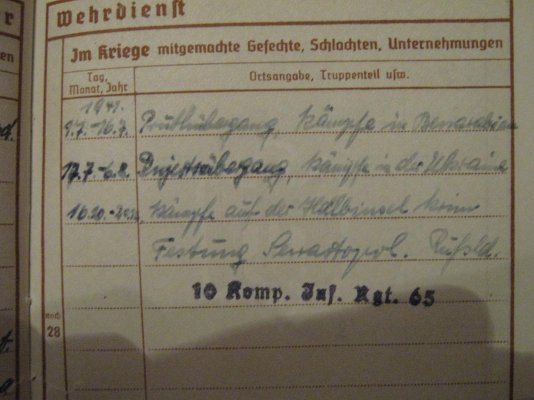 Wehrdienst
Im Kriege mitgemachte Gefechte, Schlachten, Unternehmungen
Tag, Monat, Jahr
Ortsangabe, Truppenteil usw.
1941.
9.7.-16.7. Pruthübergang, Kämpfe in Bessarabien
17.7 Dnjestrübergang, Kämpfe in der Ukraine
Kämpfe auf der Halbinsel Krim
Festung Sewastopol. Rußld.
10 Komp. Inf. Rgt. 65
noch 28